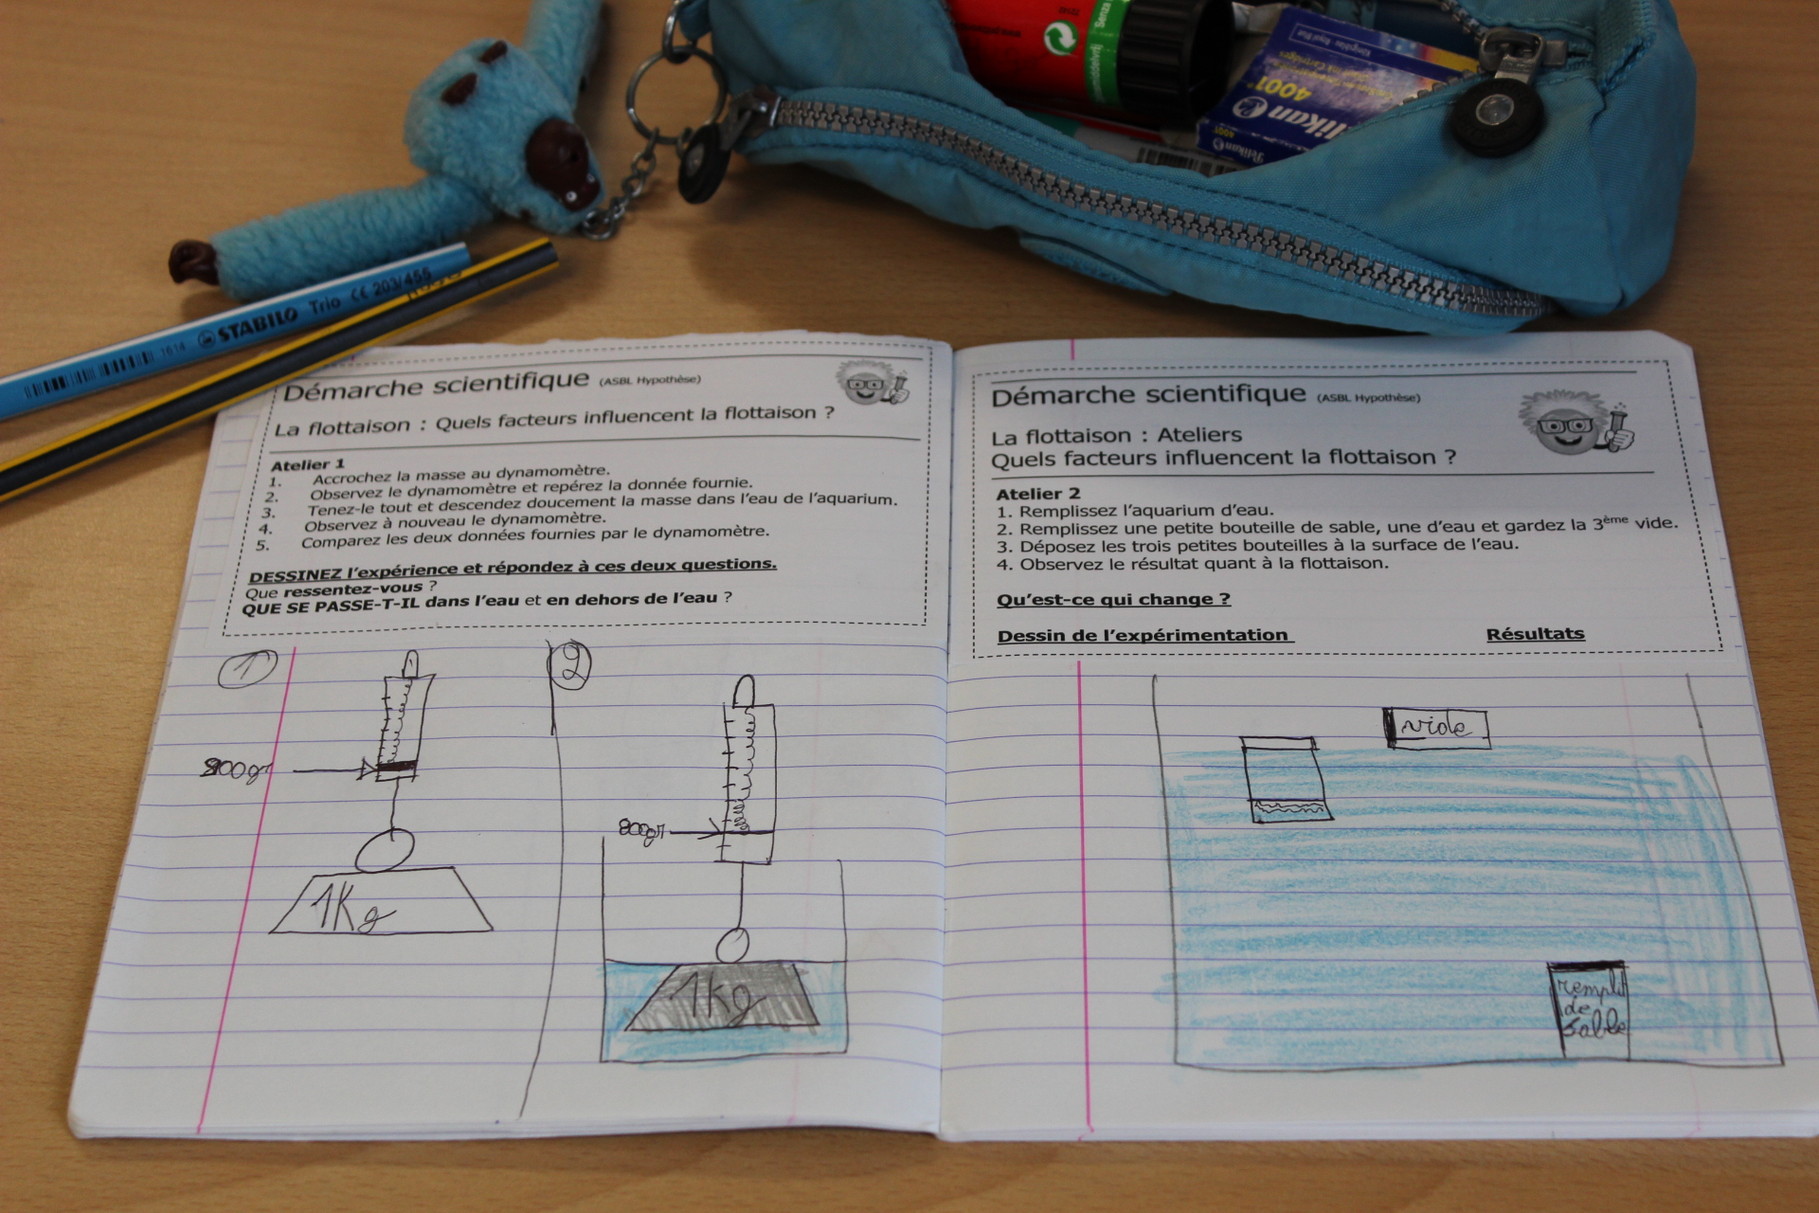 Senza
4001
Pelikan
4001
Pelikan
STABILO Trio CE 203/455
1614
Démarche scientifique (ASBL Hypothèse)
La flottaison : Quels facteurs influencent la flottaison ?
Atelier 1
1. Accrochez la masse au dynamomètre.
2. Observez le dynamomètre et repérez la donnée fournie.
3. Tenez-le tout et descendez doucement la masse dans l'eau de l'aquarium.
4. Observez à nouveau le dynamomètre.
5. Comparez les deux données fournies par le dynamomètre.
DESSINEZ l'expérience et répondez à ces deux questions.
Que ressentez-vous ?
QUE SE PASSE-T-IL dans l'eau et en dehors de l'eau ?
1
2
900gr
800gr
1Kg
1kg
Démarche scientifique (ASBL Hypothèse)
La flottaison : Ateliers
Quels facteurs influencent la flottaison ?
Atelier 2
1. Remplissez l'aquarium d'eau.
2. Remplissez une petite bouteille de sable, une d'eau et gardez la 3ème vide.
3. Déposez les trois petites bouteilles à la surface de l'eau.
4. Observez le résultat quant à la flottaison.
Qu'est-ce qui change ?
Dessin de l'expérimentation Résultats
vide
remplit
de
sable